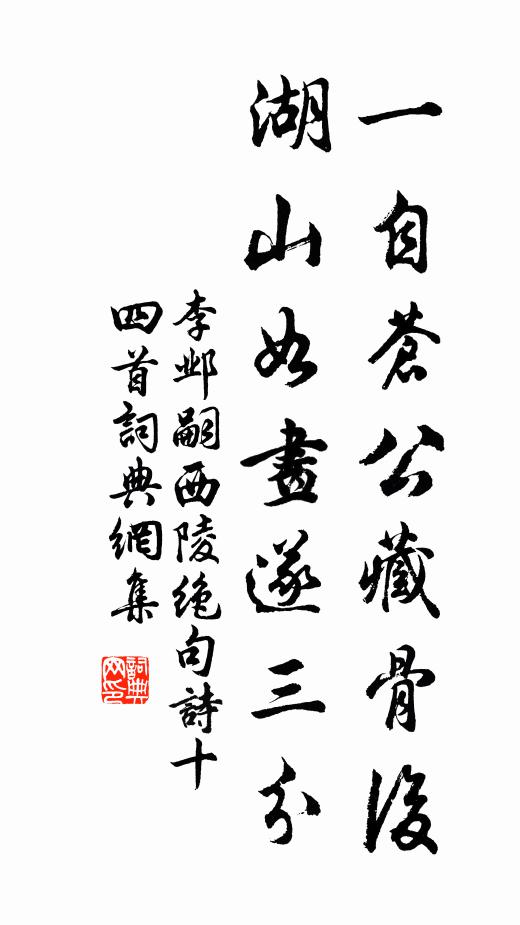 一自苍公藏骨後
湖山如畫遂三分
李邺嗣西陵绝句詩十
四首詞典網集
詞典
网印